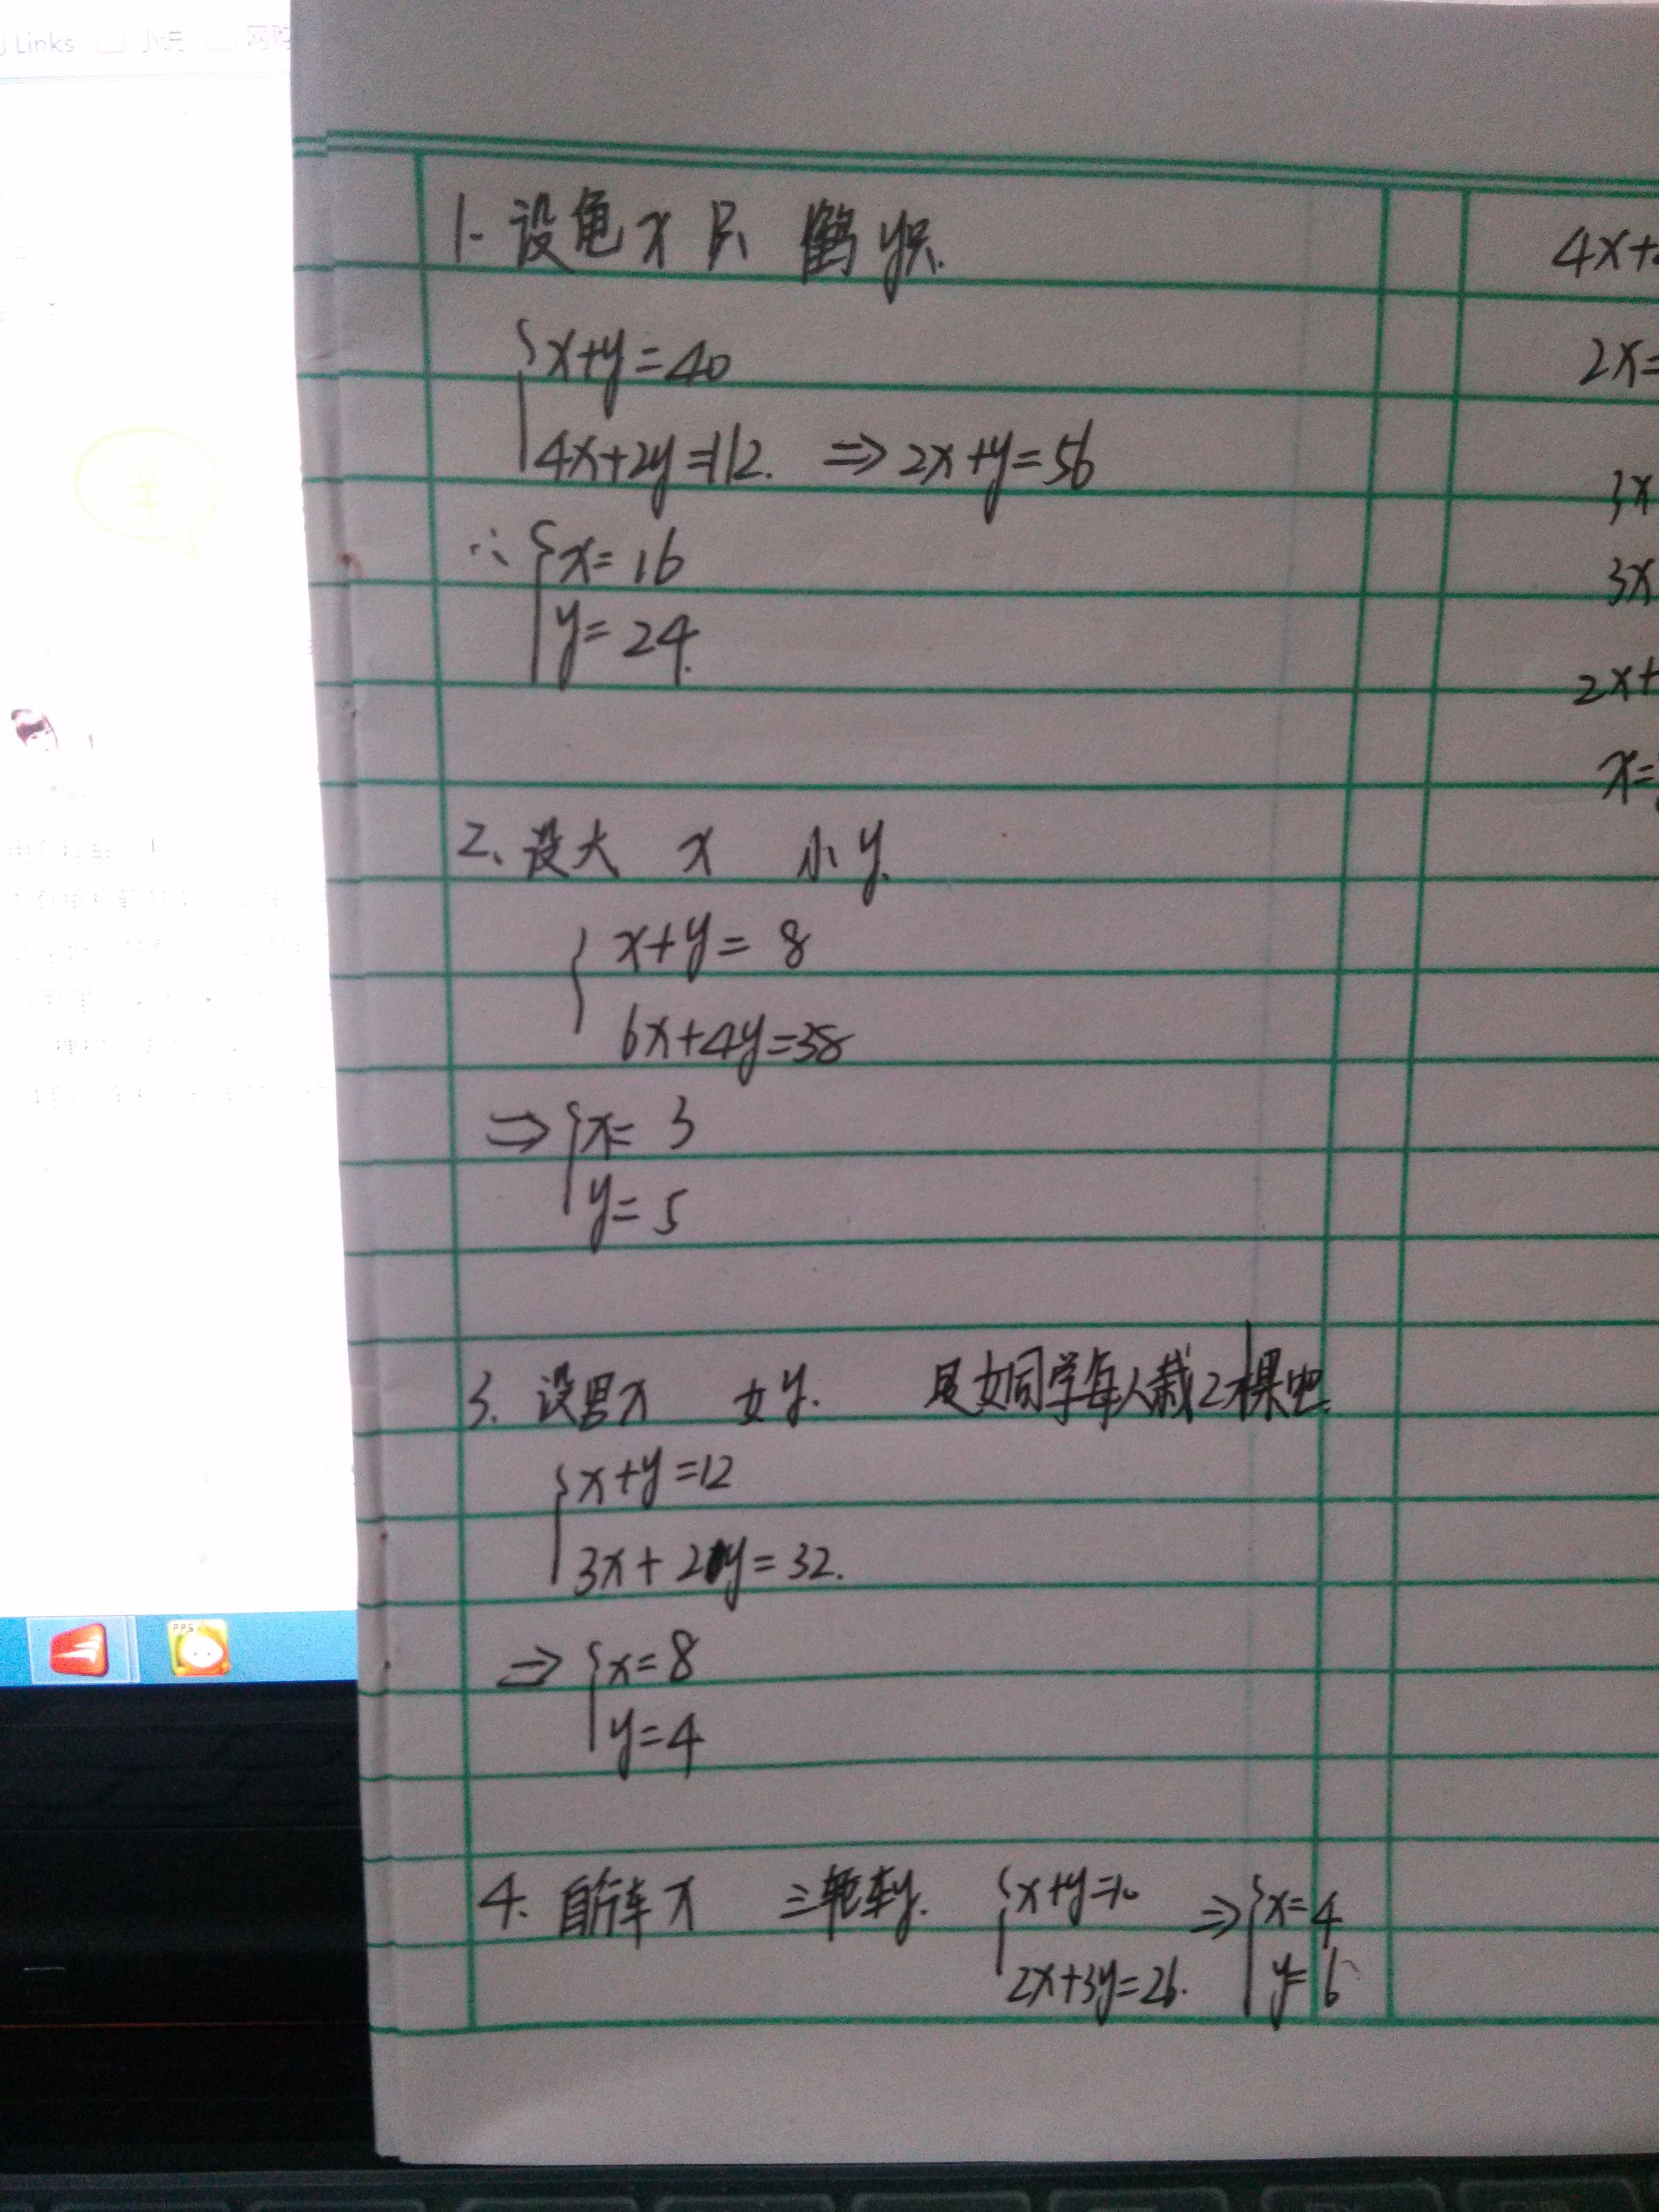 Links 小说 网购
1. 设龟x只 鹤y只.
x+y=40
4x+2y=112. ⇒2x+y=56
∴ x=16
y=24.
2、设大 x 小y.
x+y=8
6x+4y=38
⇒ x=3
y=5
3. 设男x 女y. 是女同学每人栽2棵吧.
x+y=12
3x+2y=32.
⇒ x=8
y=4
4. 自行车x 三轮车y. x+y=10 ⇒ x=4
2x+3y=26. y=6
4x+
2x=
3x
3x
2x+
x=
PPS